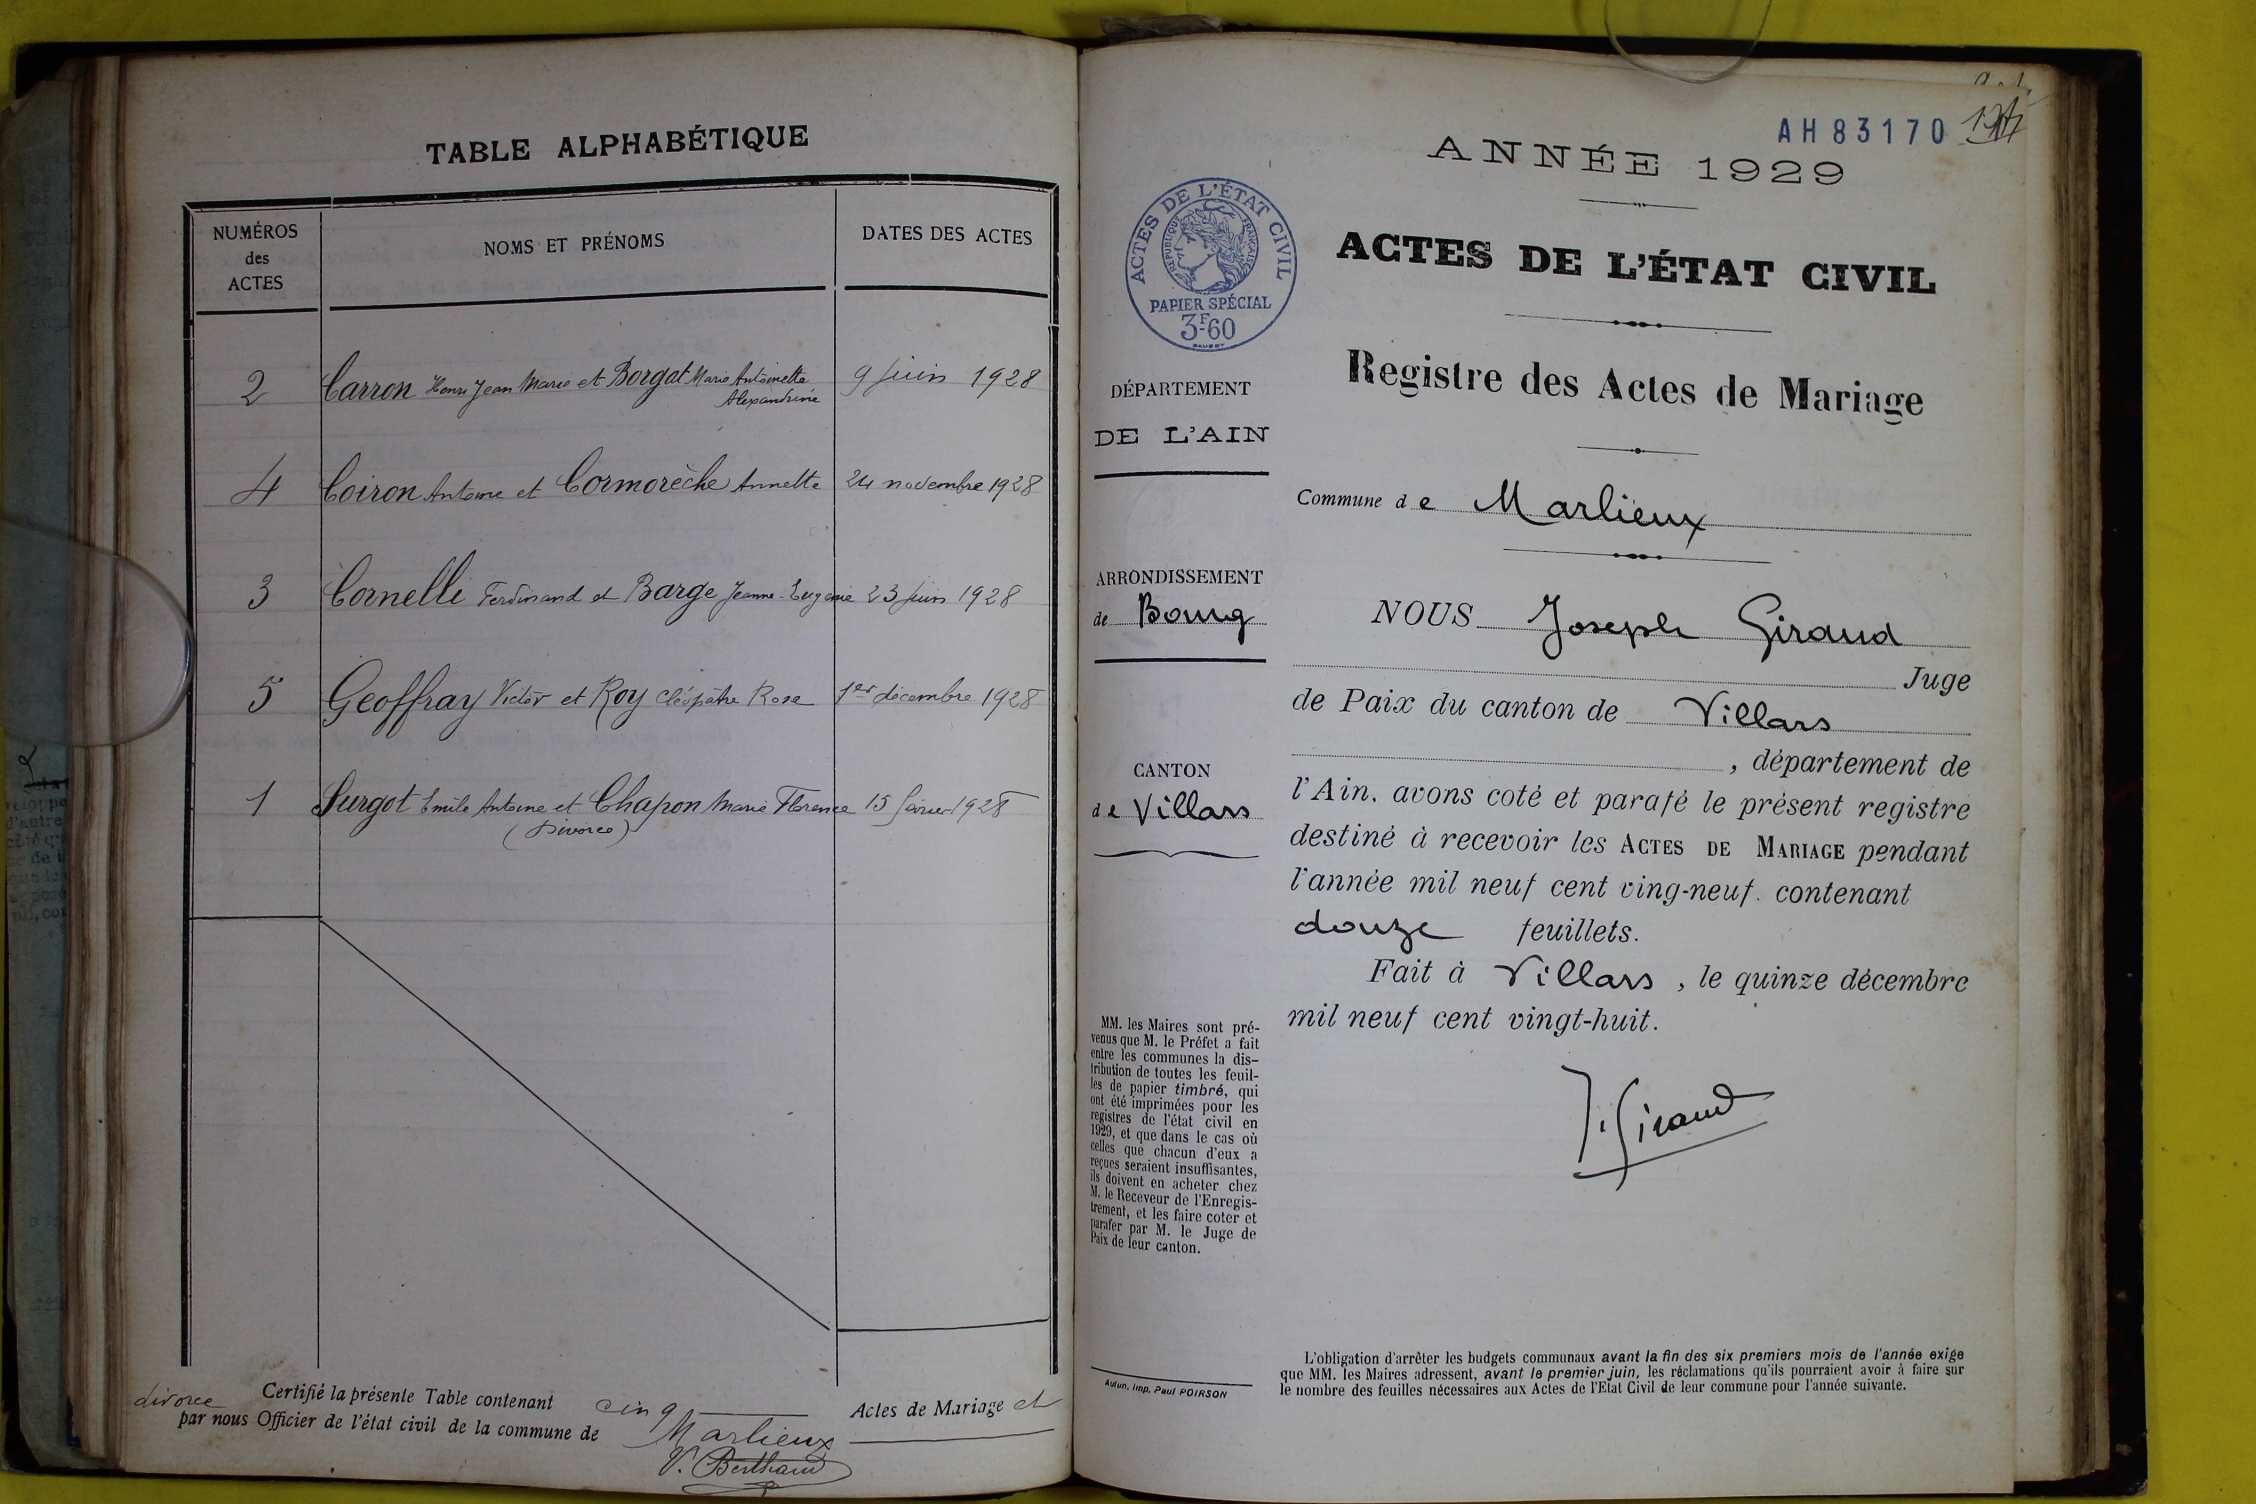 TABLE ALPHABÉTIQUE
NUMÉROS
des
ACTES
NOMS ET PRÉNOMS
DATES DES ACTES
2 Carron Henri Jean Marie et Borgat Marie Antoinette 9 Juin 1928
Alexandrine
4 Coiron Antoine et Cormorèche Annette 24 novembre 1928
3 Cornelli Ferdinand et Barge Jeanne-Eugénie 23 Juin 1928
5 Geoffray Victor et Roy Cléopâtre Rose 1er décembre 1928
1 Surgot Emile Antoine et Chapon Marie Florence 15 février 1928
(Divorce)
Certifié la présente Table contenant cinq Actes de Mariage et
divorce
par nous Officier de l'état civil de la commune de Marlieux
V. Berthaud
AH 83170
ANNÉE 1929
ACTES DE L'ÉTAT CIVIL
RÉPUBLIQUE FRANÇAISE
PAPIER SPÉCIAL
3F60
ACTES DE L'ÉTAT CIVIL
Registre des Actes de Mariage
DÉPARTEMENT
DE L'AIN
Commune de Marlieux
ARRONDISSEMENT
de Bourg
NOUS Joseph Giraud
Juge
de Paix du canton de Villars
, département de
CANTON
de Villars
l'Ain. avons coté et parafé le présent registre
destiné à recevoir les ACTES DE MARIAGE pendant
l'année mil neuf cent ving-neuf. contenant
douze feuillets.
Fait à Villars, le quinze décembre
mil neuf cent vingt-huit.
J. Giraud
MM. les Maires sont pré-
venus que M. le Préfet a fait
entre les communes la dis-
tribution de toutes les feuil-
les de papier timbré, qui
ont été imprimées pour les
registres de l'état civil en
1929, et que dans le cas où
celles que chacun d'eux a
reçues seraient insuffisantes,
ils doivent en acheter chez
M. le Receveur de l'Enregis-
trement, et les faire coter et
parafer par M. le Juge de
Paix de leur canton.
Autun, Imp. Paul POIRSON
L'obligation d'arrêter les budgets communaux avant la fin des six premiers mois de l'année exige
que MM. les Maires adressent, avant le premier juin, les réclamations qu'ils pourraient avoir à faire sur
le nombre des feuilles nécessaires aux Actes de l'Etat Civil de leur commune pour l'année suivante.